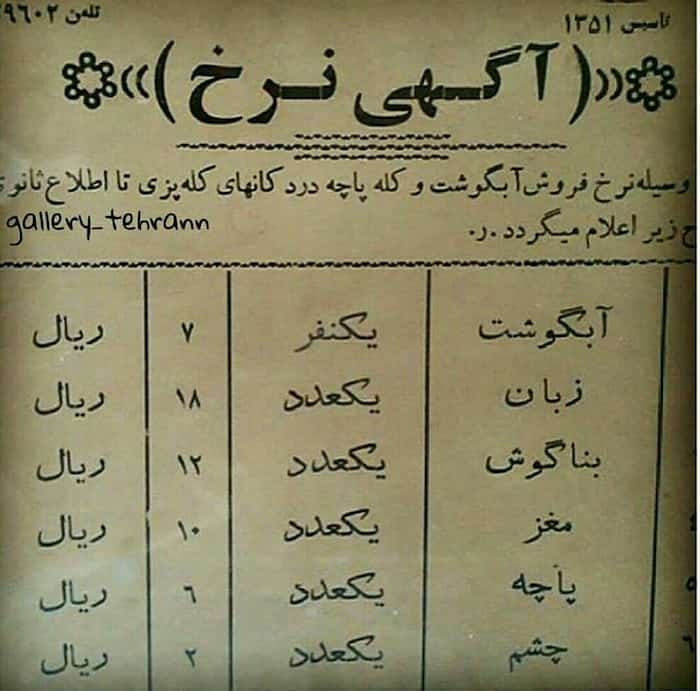 تاسیس ۱۳۵۱
تلفن ۹۶۰۲
((( آگـهی نـرخ )))
وسیله نرخ فروش آبگوشت و کله پاچه در دکانهای کله‌پزی تا اطلاع ثانوی
ح زیر اعلام میگردد .ر.
gallery_tehrann
آبگوشت یکنفر ۷ ریال
زبان یکعدد ۱۸ ریال
بناگوش یکعدد ۱۲ ریال
مغز یکعدد ۱۰ ریال
پاچه یکعدد ٦ ریال
٦ چشم یکعدد ۲ ریال